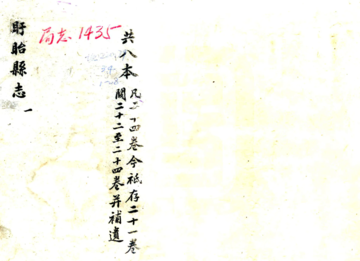 盱眙縣志 一
局志 1435
共八本
凡二十四卷今祇存二十一卷
闕二十二至二十四卷并補遺